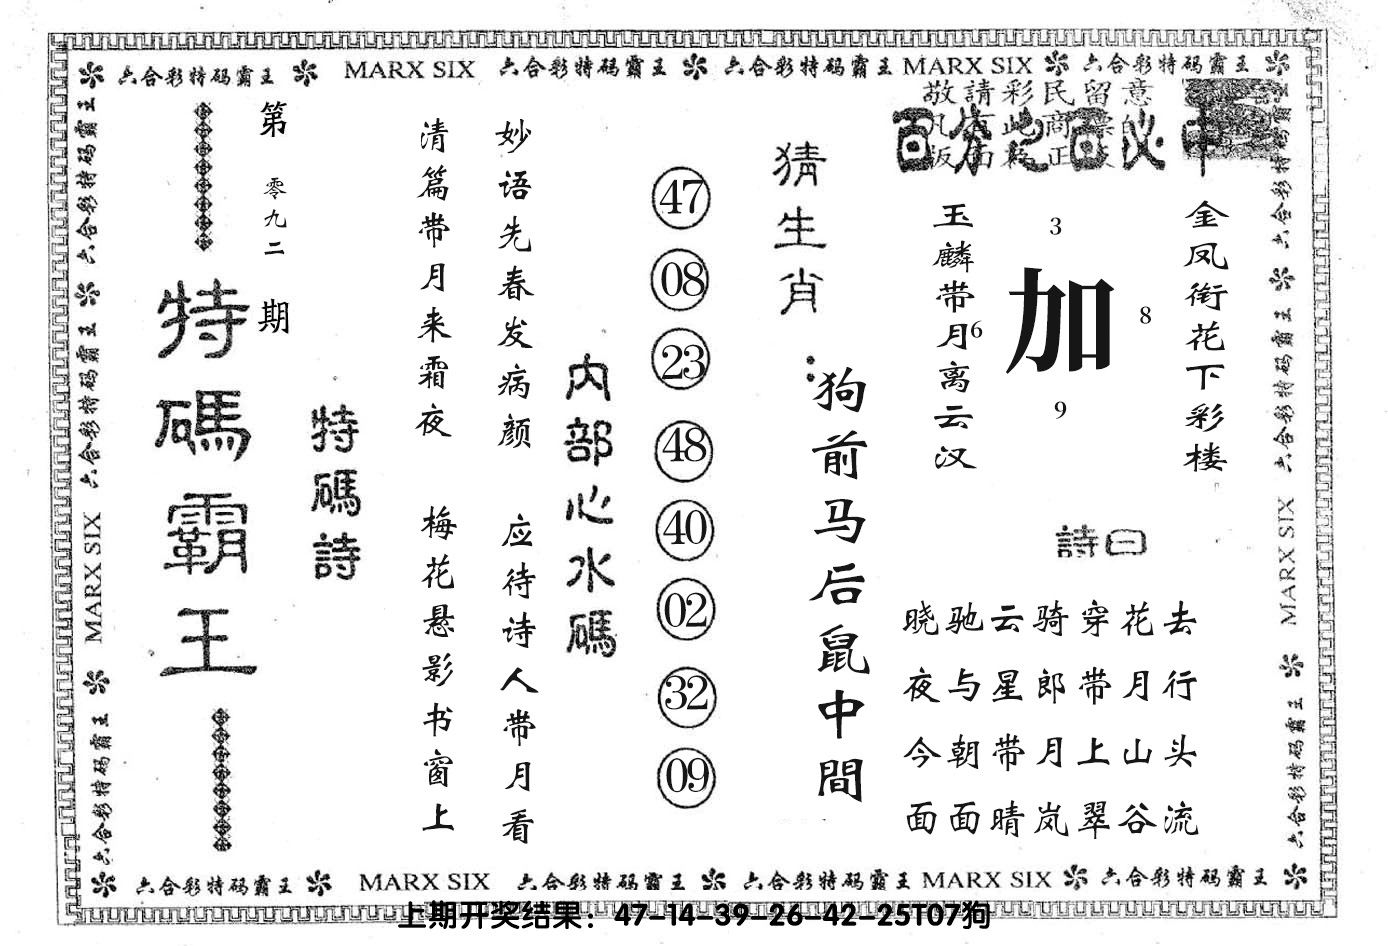 六合彩特码霸王 MARX SIX 六合彩特码霸王 六合彩特码霸王 MARX SIX 六合彩特码霸王
敬請彩民留意
百分之百必中
金凤衔花下彩楼
玉麟带月离云汉
3
加
6
8
9
詩曰
晓驰云骑穿花去
夜与星郎带月行
今朝带月上山头
面面晴岚翠谷流
猜生肖：
狗前马后鼠中間
47
08
23
48
40
02
32
09
内部心水碼
妙语先春发病颜 应待诗人带月看
清篇带月来霜夜 梅花悬影书窗上
特碼詩
第零九二期
特碼霸王
六合彩特码霸王 六合彩特码霸王 MARX SIX 六合彩特码霸王
六合彩特码霸王 六合彩特码霸王 MARX SIX 六合彩特码霸王
六合彩特码霸王 MARX SIX 六合彩特码霸王 六合彩特码霸王 MARX SIX 六合彩特码霸王
上期开奖结果：47-14-39-26-42-25T07狗